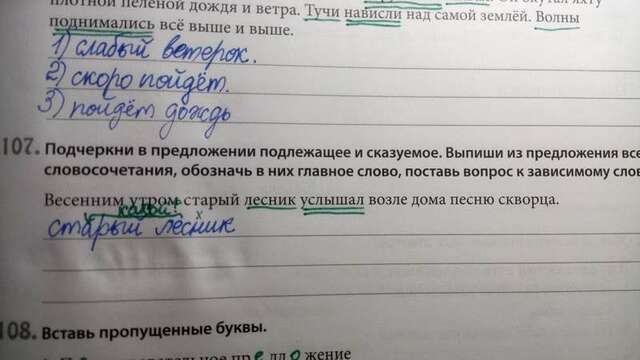 плотной пеленой дождя и ветра. Тучи нависли над самой землёй. Волны
поднимались всё выше и выше.
1) слабый ветерок.
2) скоро пойдёт.
3) пойдёт дождь
107. Подчеркни в предложении подлежащее и сказуемое. Выпиши из предложения все
словосочетания, обозначь в них главное слово, поставь вопрос к зависимому
Весенним утром старый лесник услышал возле дома песню скворца.
какой? x
старый лесник
108. Вставь пропущенные буквы.